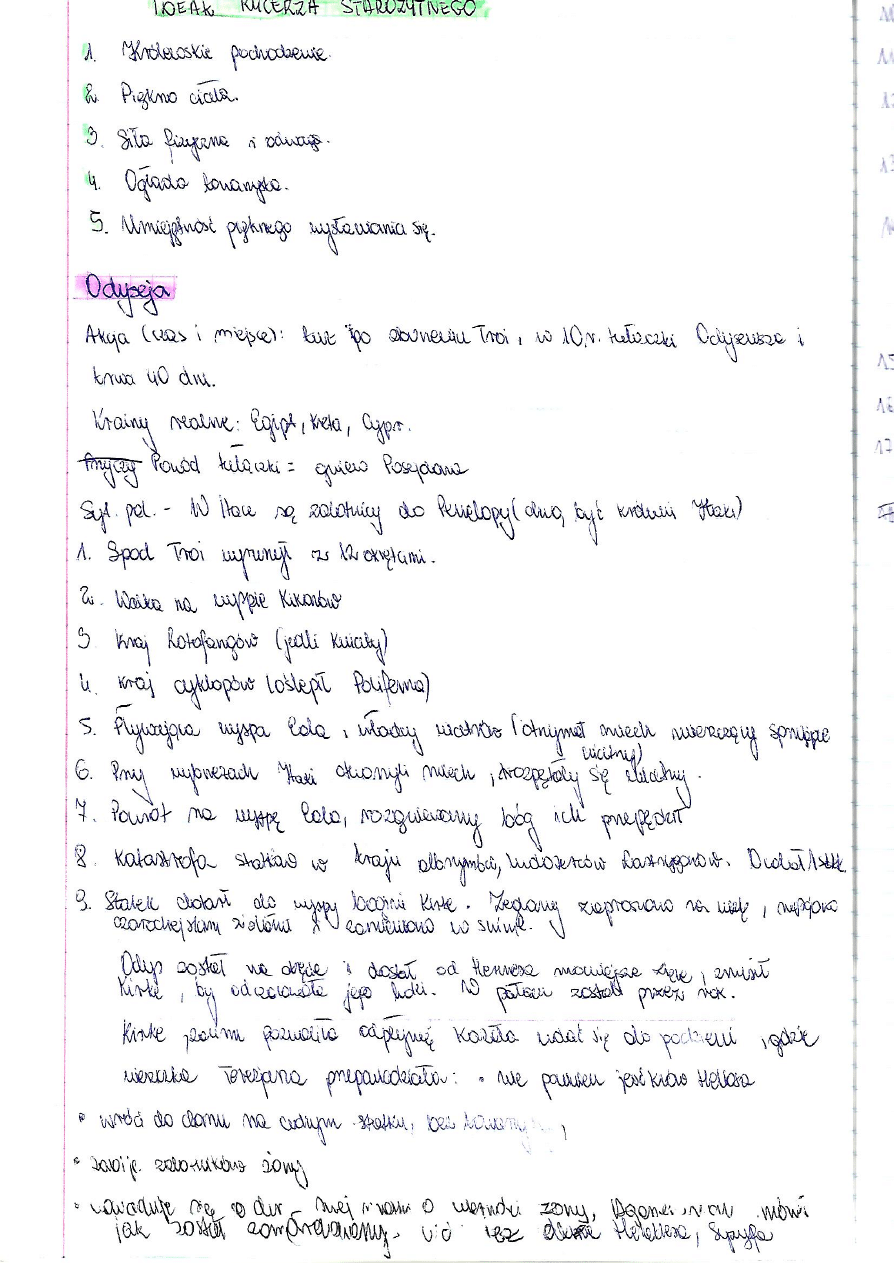 IDEAŁ RYCERZA STAROŻYTNEGO
1. Królewskie pochodzenie.
2. Piękno ciała.
3. Siła fizyczna i odwaga.
4. Ogłada towarzyska.
5. Umiejętność pięknego wysławiania się.
Odyseja
Akcja (czas i miejsce): tuż po zburzeniu Troi, w 10 r. tułaczki Odyseusza i
trwa 40 dni.
Krainy realne: Egipt, Kreta, Cypr.
Powód tułaczki = gniew Posejdona
Syt. pol. - W Itace są zalotnicy do Penelopy (chcą być królmi Itaki)
1. Spod Troi wyruszył ze 12 okrętami.
2. Walka na wyspie Kikonów
3 Kraj Lotofagów (jedli kwiaty)
4. Kraj cyklopów (oślepił Polifema)
5. Pływająca wyspa Eola, władcy wiatrów (otrzymał miech mieszczący sprzyjające
wiatry)
6. Przy wybrzeżach Itaki otworzyli miech, rozpętały się wiatry.
7. Powrót na wyspę Eola, rozgniewany bóg ich przepędził
8. Katastrofa statków w kraju olbrzymów, ludożerców Lastrygonów. Ocalał 1 statek.
9. Statek dotarł do wyspy bogini Kirke. Żeglarzy zaproszono na ucztę, napojono
czarodziejskim ziołami i zamieniono w świnie.
Odys został na okręcie i dostał od Hermesa mówiące ziele, zmusił
Kirke, by odczarowała jego ludzi. W pałacu został przez rok.
Kirke zanim pozwoliła odpłynąć kazała udać się do podziemi, gdzie
wieszczka Terezjana przepowiedziała: • nie powinien jeść krów Heliosa
• wróci do domu na cudzym statku, bez towarzyszy,
• zabije zalotników żony
• dowiaduje się o wierności żony, Agamemnon mówi
jak został zamordowany. Heraklesa, Syzyfa